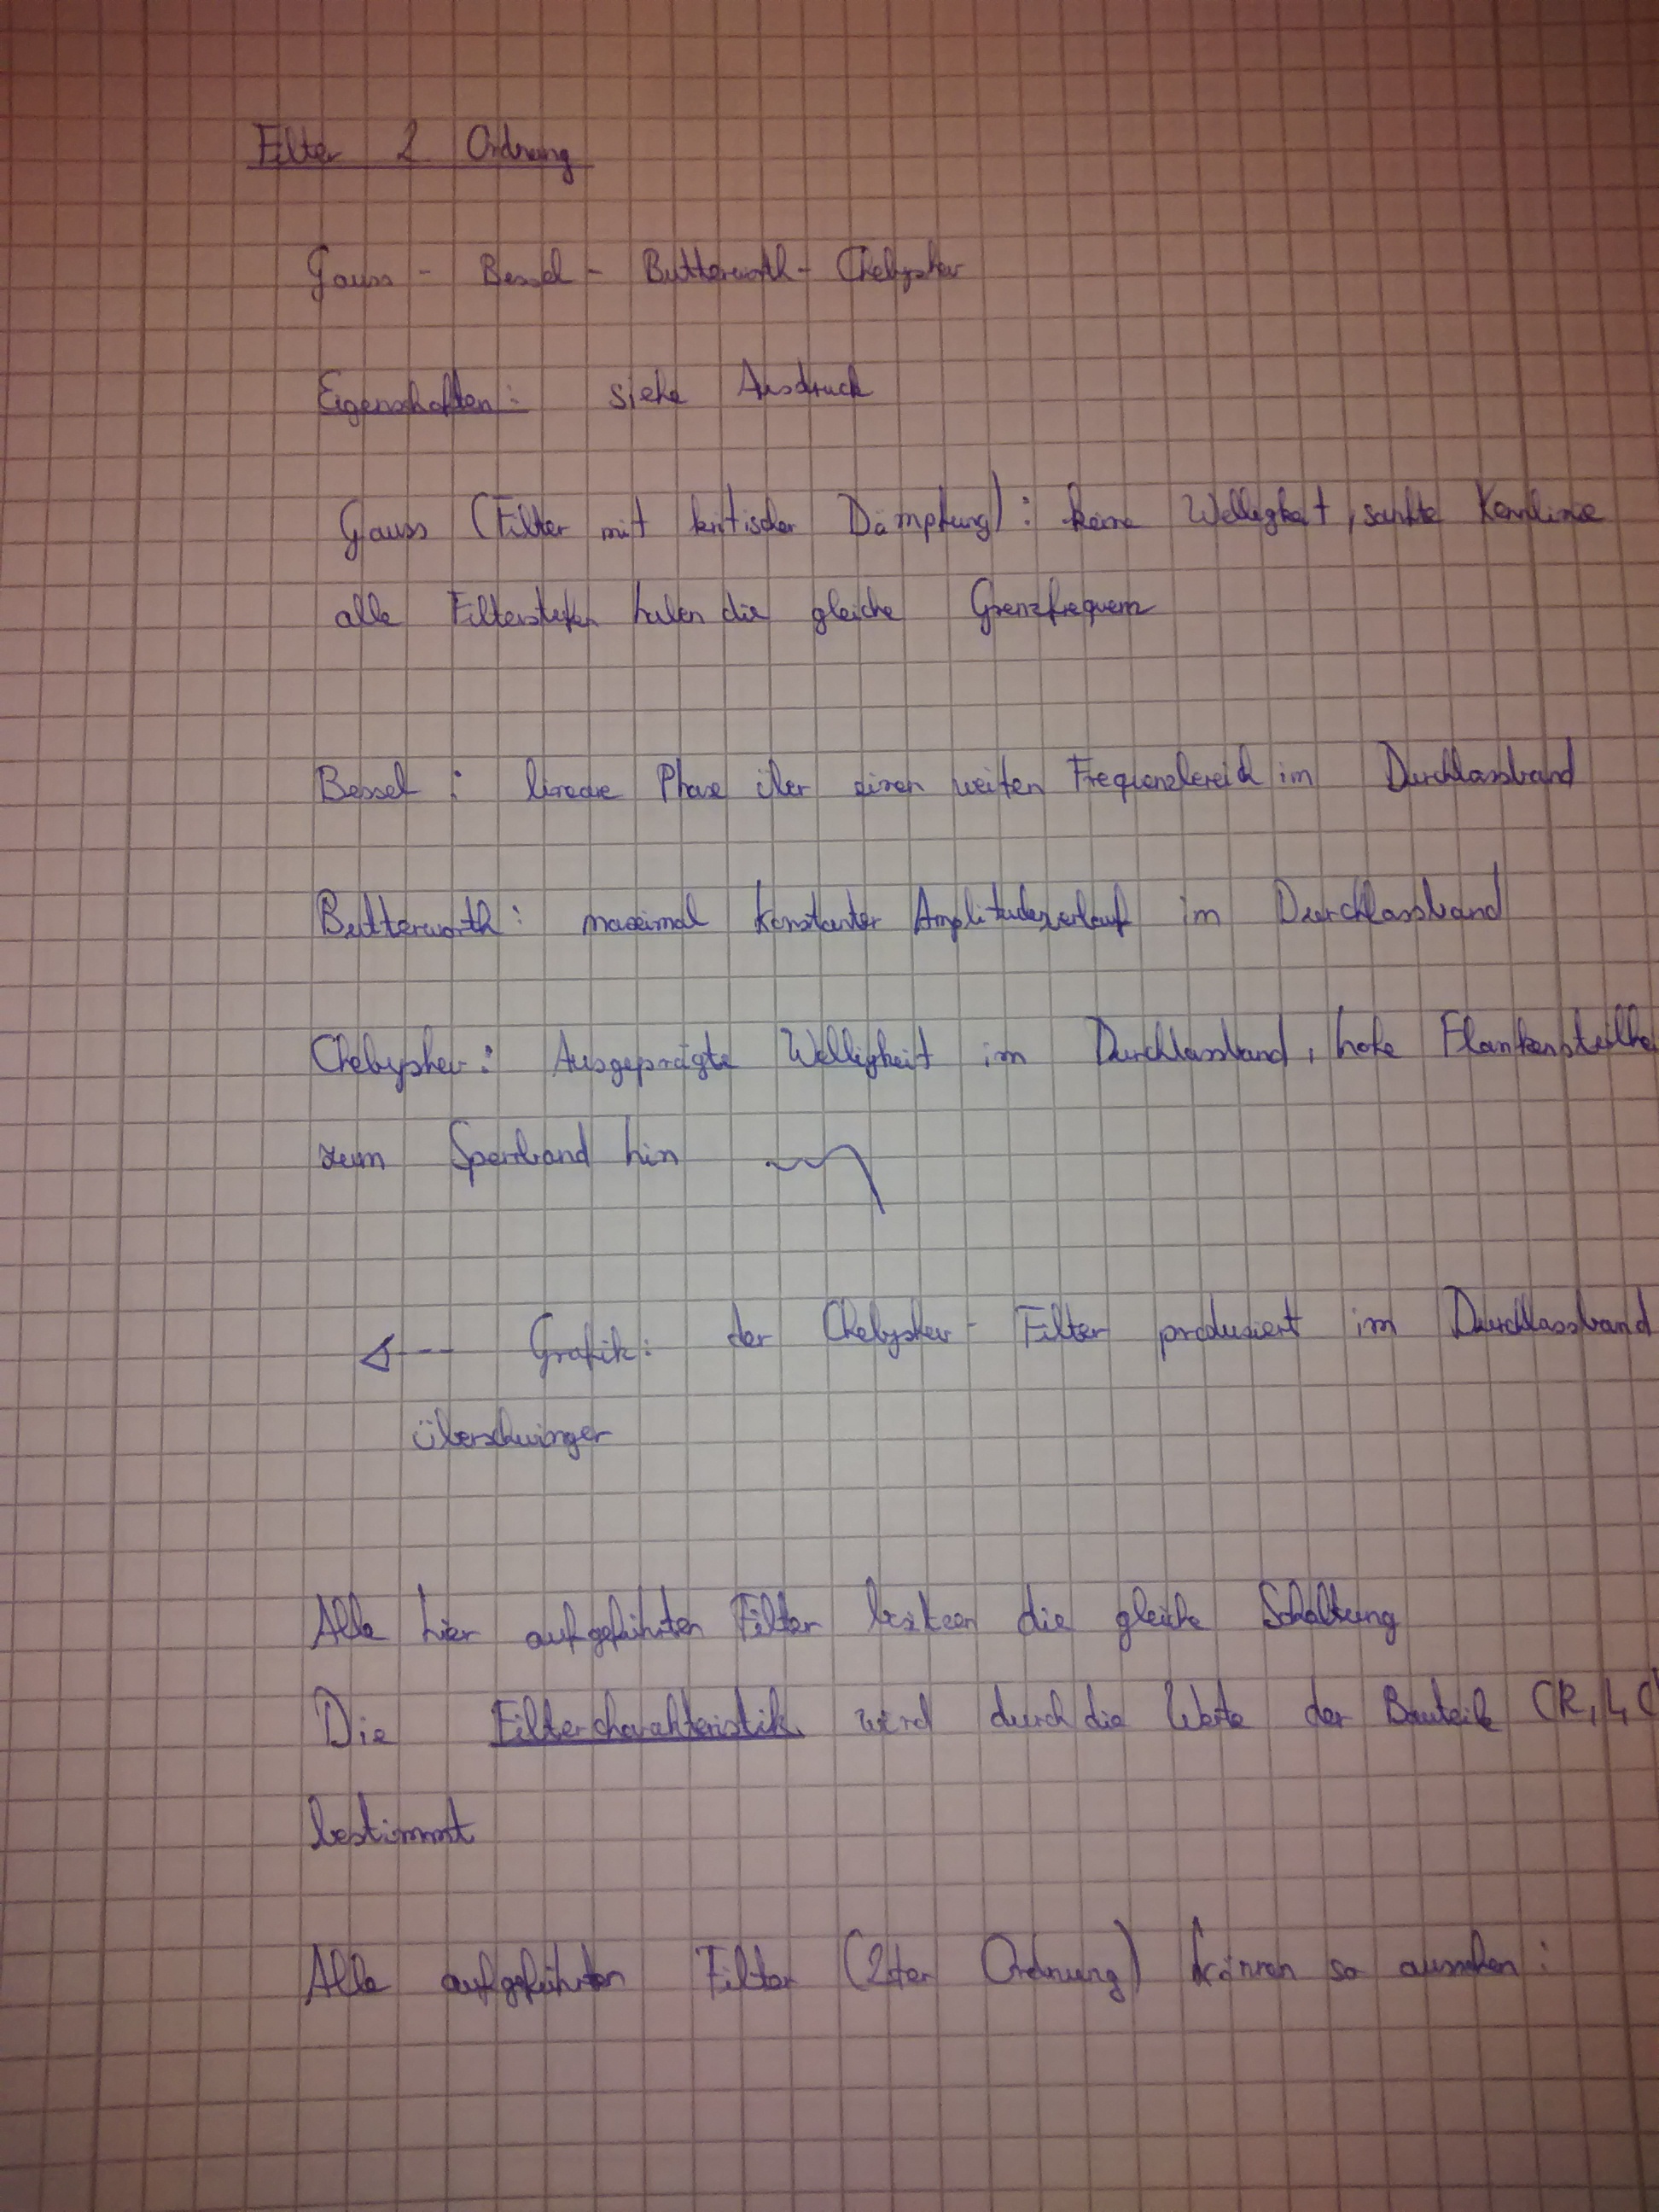 Filter 2 Ordnung
Gauss - Bessel - Butterworth - Chebyshev
Eigenschaften: siehe Ausdruck
Gauss (Filter mit kritischer Dämpfung): keine Welligkeit, sanfte Kennlinie
alle Filterstufen haben die gleiche Grenzfrequenz
Bessel: lineare Phase über einen weiten Frequenzbereich im Durchlassband
Butterworth: maximal konstanter Amplitudenverlauf im Durchlassband
Chebyshev: Ausgeprägte Welligkeit im Durchlassband, hohe Flankensteilhei
zum Sperrband hin
Grafik: der Chebyshev-Filter produziert im Durchlassband
überschwinger
Alle hier aufgeführten Filter besitzen die gleiche Schaltung
Die Filtercharakteristik wird durch die Werte der Bauteile (R, L, C
bestimmt
Alle aufgeführten Filter (2ter Ordnung) können so aussehen: